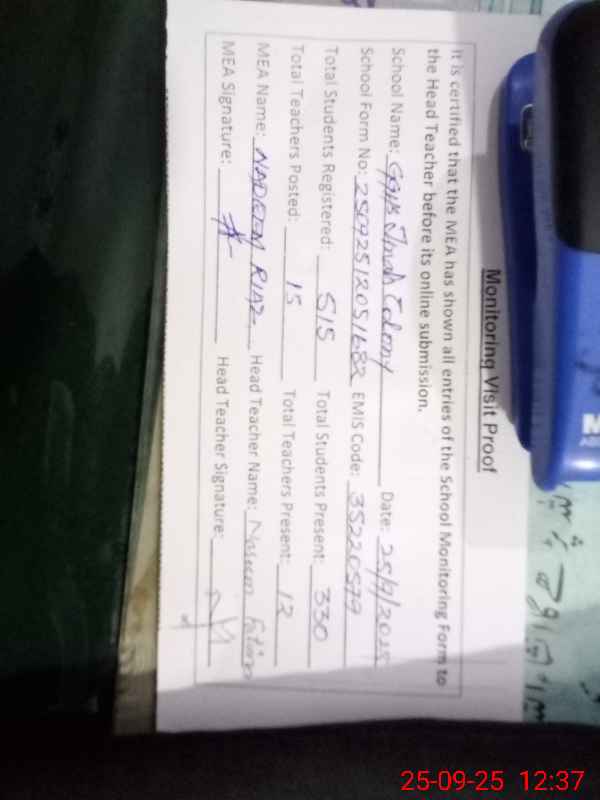 Monitoring Visit Proof
It is certified that the MEA has shown all entries of the School Monitoring Form to
the Head Teacher before its online submission.
School Name: Jinah Colony Date: 25/9/2025
School Form No: 25092512051682 EMIS Code: 35220579
Total Students Registered: 515 Total Students Present: 330
Total Teachers Posted: 15 Total Teachers Present: 12
MEA Name: NADEEM RIAZ Head Teacher Name: Fatima
MEA Signature: Head Teacher Signature:
25-09-25 12:37